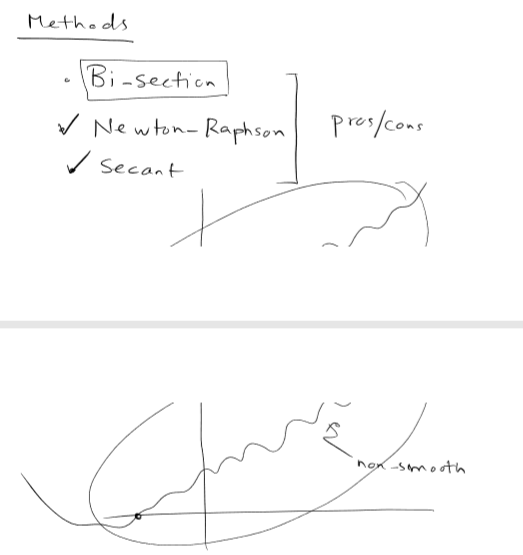 Methods
• Bi-section
✓ Newton-Raphson
✓ Secant
pros/cons
non-smooth